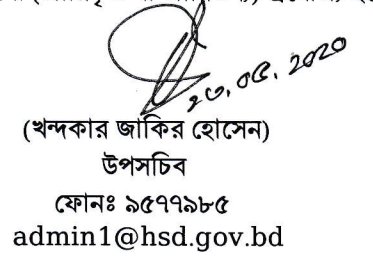 ২৩.০৫.২০২০
(খন্দকার জাকির হোসেন)
উপসচিব
ফোনঃ ৯৫৭৭৯৮৫
admin1@hsd.gov.bd